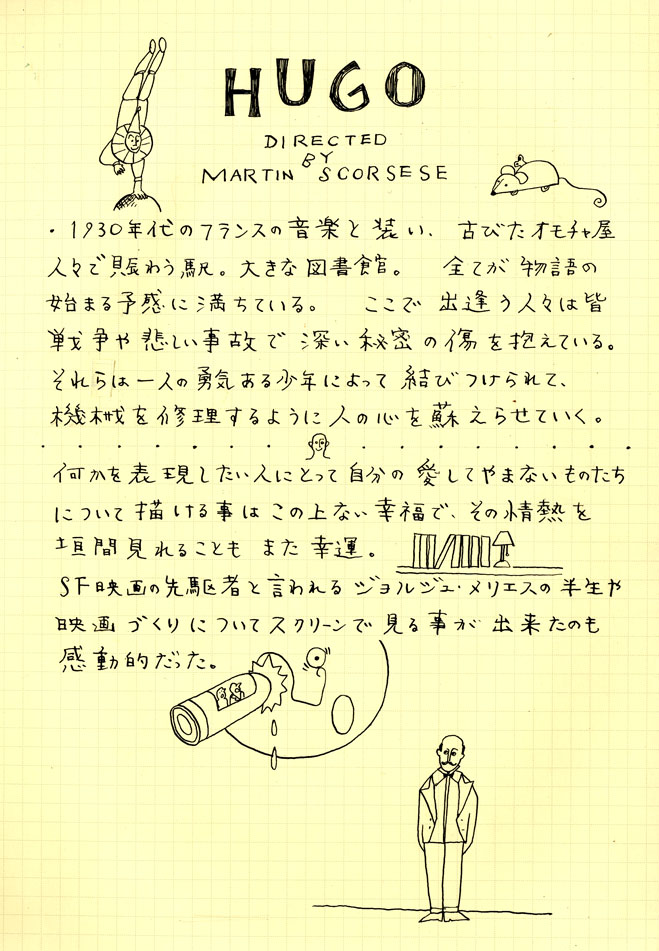 HUGO
DIRECTED
BY
MARTIN SCORSESE
・1930年代のフランスの音楽と装い、古びたオモチャ屋
人々で賑わう駅。大きな図書館。全てが物語の
始まる予感に満ちている。ここで出逢う人々は皆
戦争や悲しい事故で深い秘密の傷を抱えている。
それらは一人の勇気ある少年によって結びつけられて、
機械を修理するように人の心を蘇えらせていく。
何かを表現したい人にとって自分の愛してやまないものたち
について描ける事はこの上ない幸福で、その情熱を
垣間見れることもまた幸運。
SF映画の先駆者と言われるジョルジュ・メリエスの半生や
映画づくりについてスクリーンで見る事が出来たのも
感動的だった。